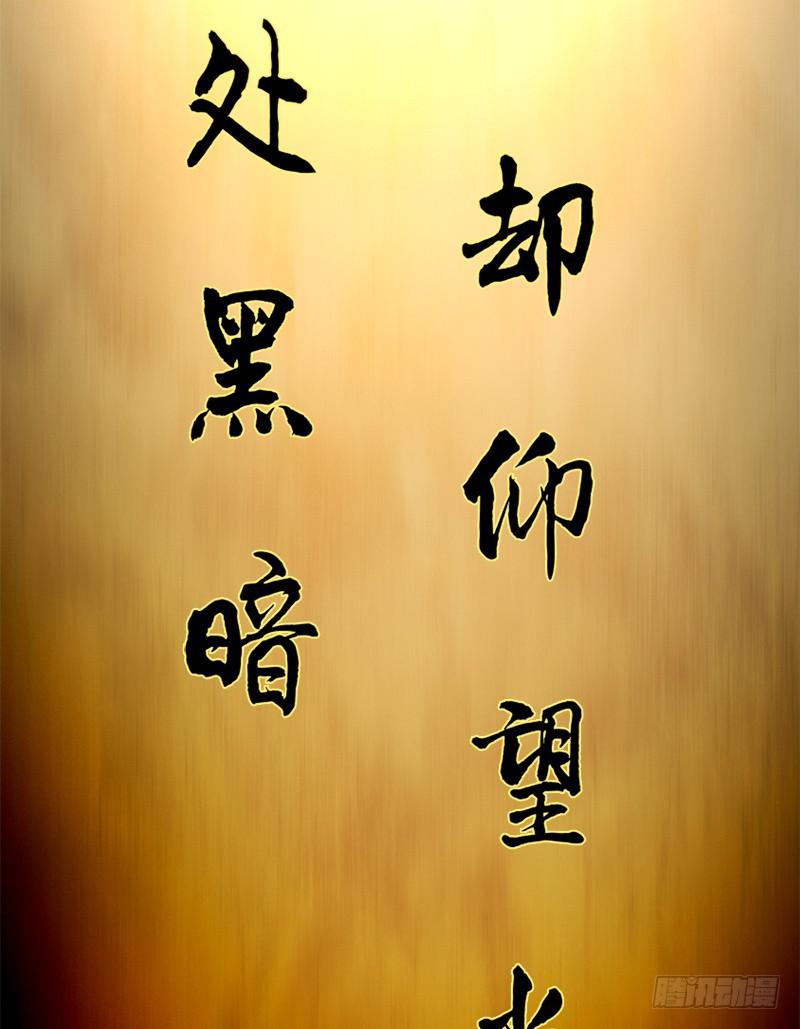 处黑暗
却仰望
腾讯动漫